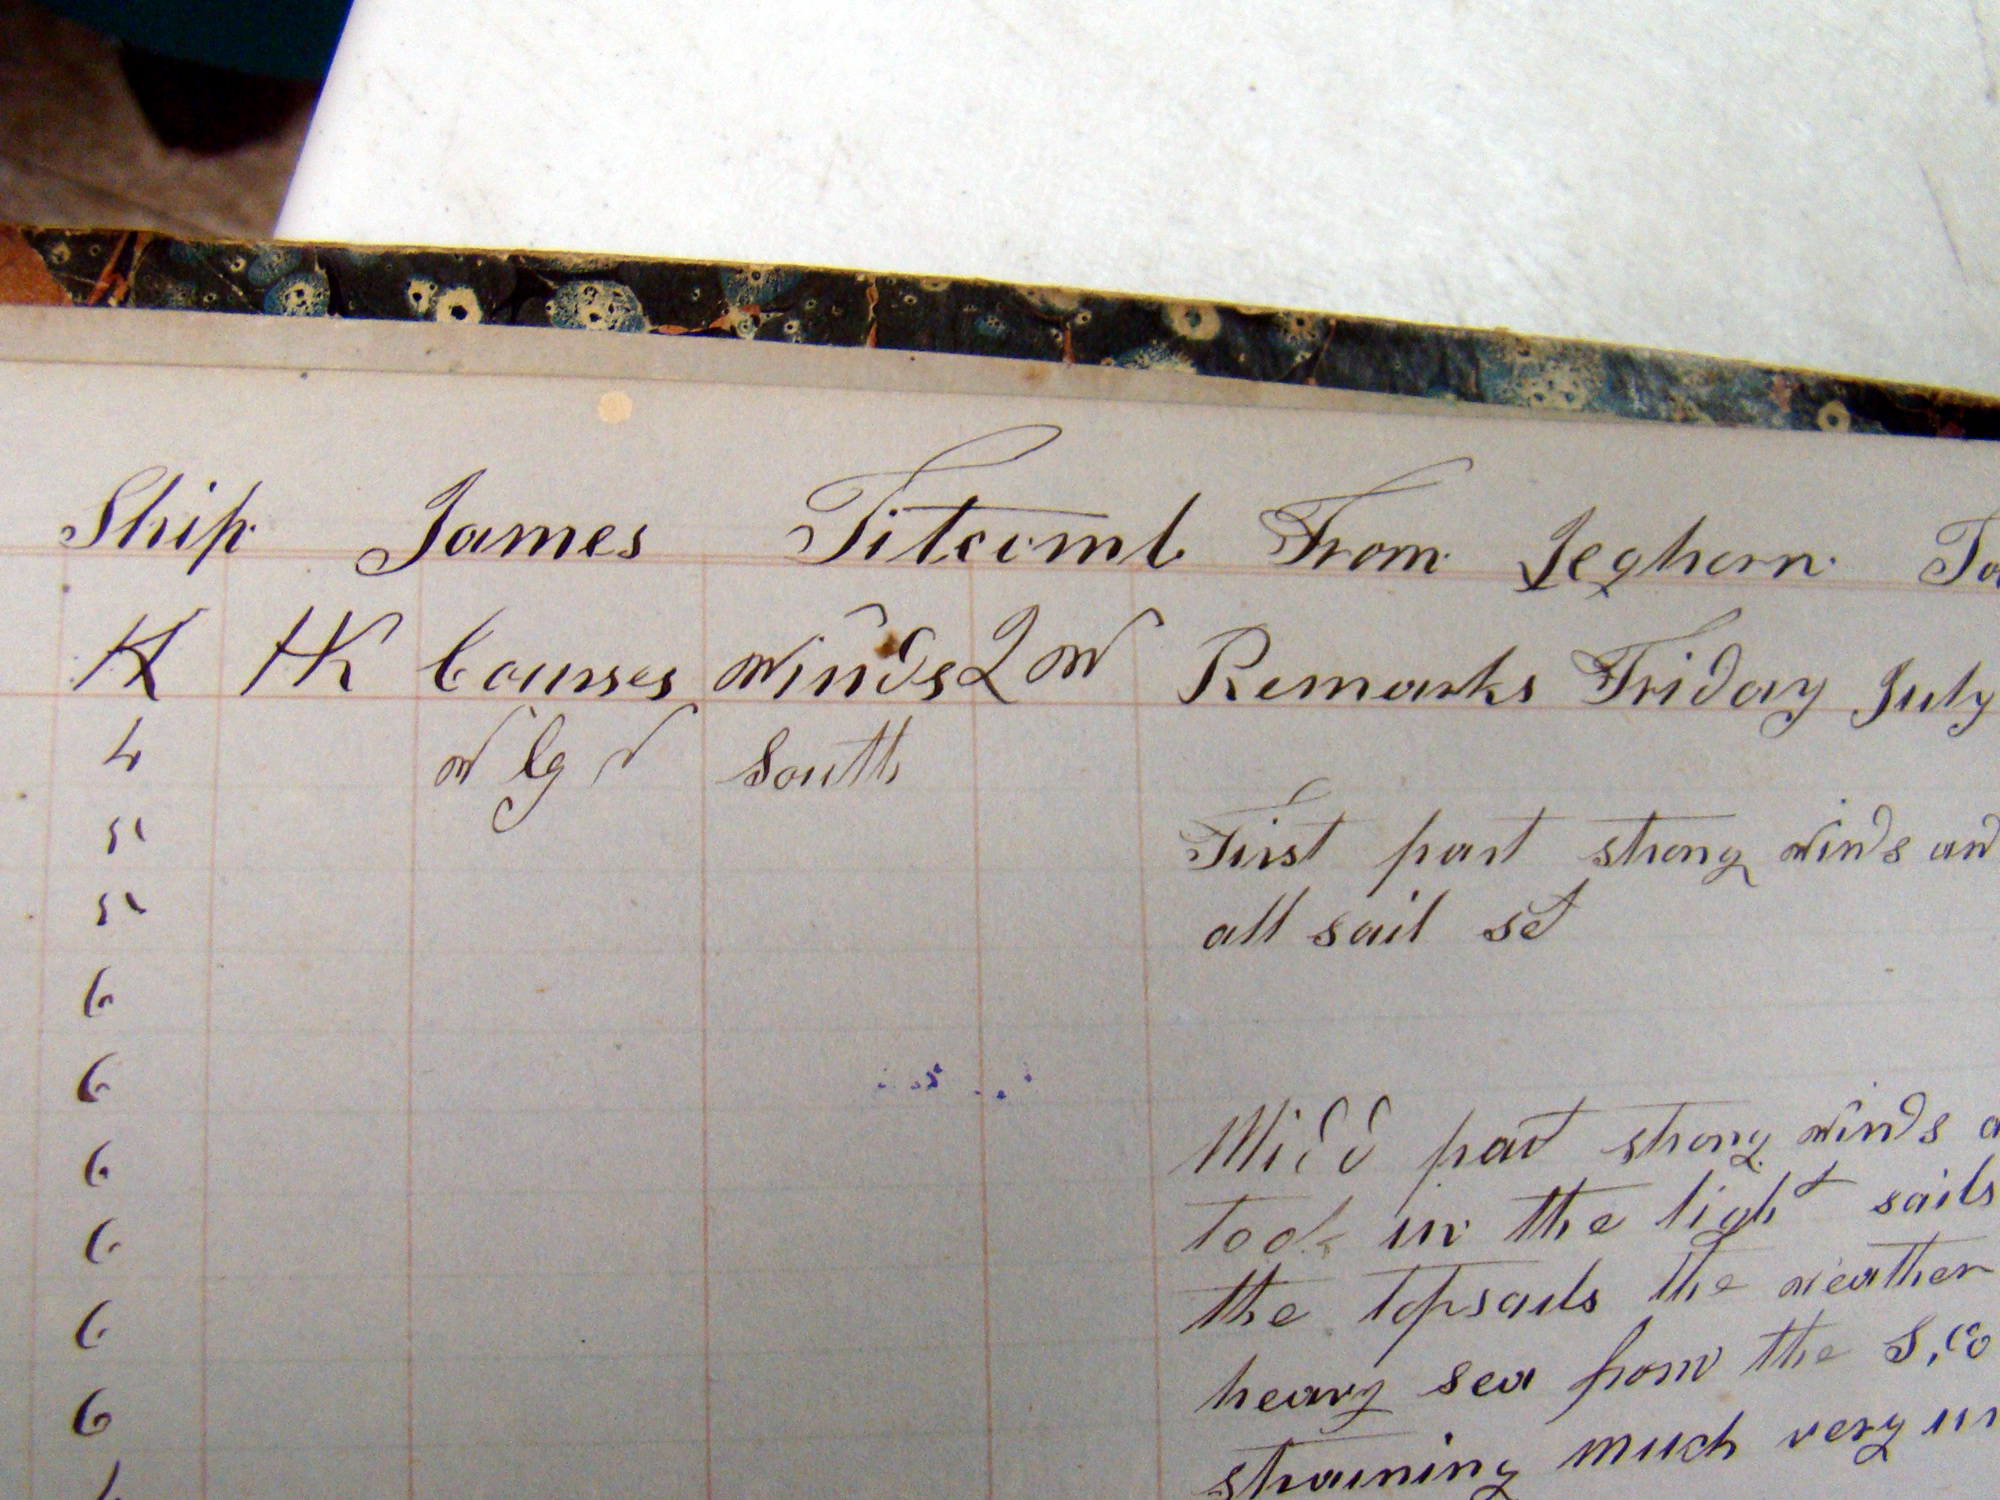 Ship James Titcomb From Leghorn To
K HK Courses Winds L W Remarks Friday July
4 South
5
First part strong winds and
5
all sail set
6
6
Midd part strong winds
6
took in the light sails
6
the topsails the weather
6
heavy sea from the
6
straining much very